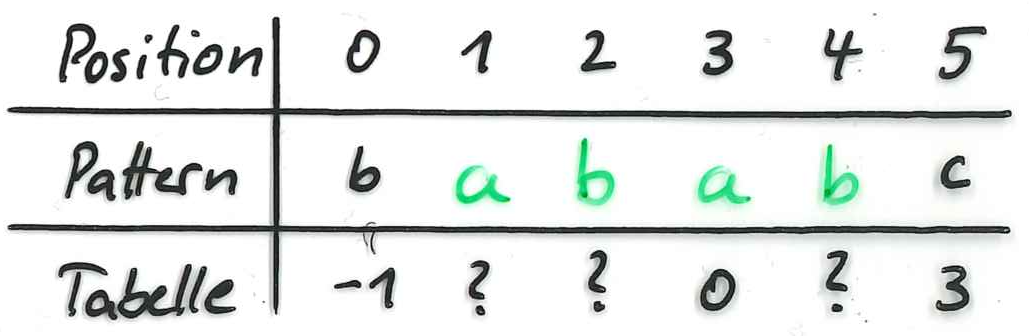 Position 0 1 2 3 4 5
Pattern b a b a b c
Tabelle -1 ? ? 0 ? 3